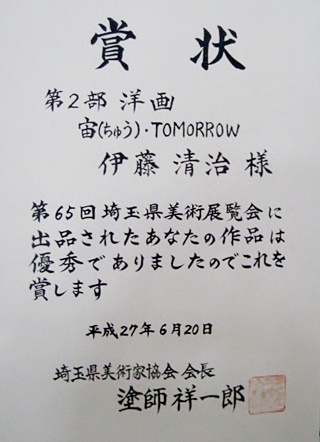 賞状
第2部 洋画
宙(ちゅう)・TOMORROW
伊藤 清治 様
第65回埼玉県美術展覧会に
出品されたあなたの作品は
優秀でありましたのでこれを
賞します
平成27年6月20日
埼玉県美術家協会 会長
塗師 祥一郎